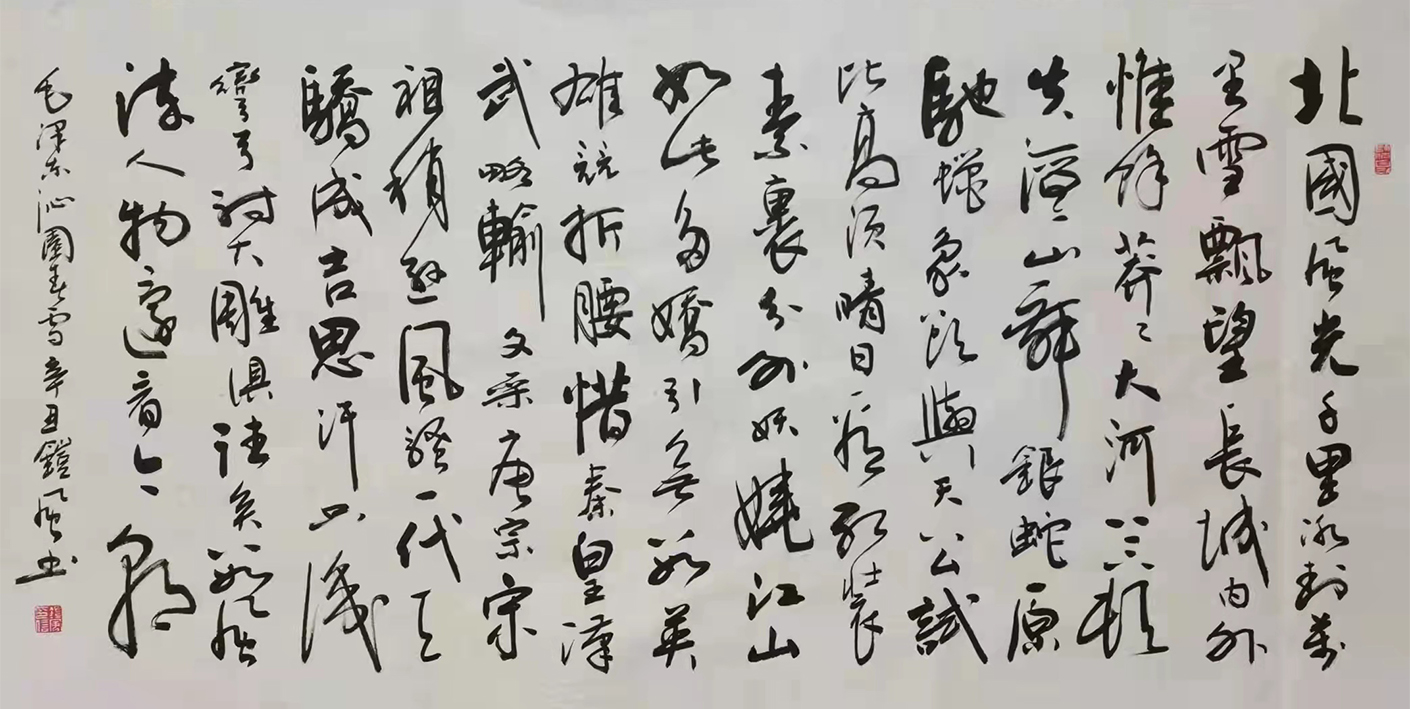 北國风光千里冰封萬
里雪飄望長城内外
惟餘莽〻大河上下頓
失滔〻山舞銀蛇原
馳蠟象欲與天公試
比高須晴日看紅裝
素裹分外妖嬈江山
如此多嬌引無數英
雄競折腰惜秦皇漢
武略輸文采唐宗宋
祖稍遜風騷一代天
驕成吉思汗只識
彎弓射大雕俱往矣數风
流人物還看今朝
毛澤东沁園春雪辛丑鎧风书